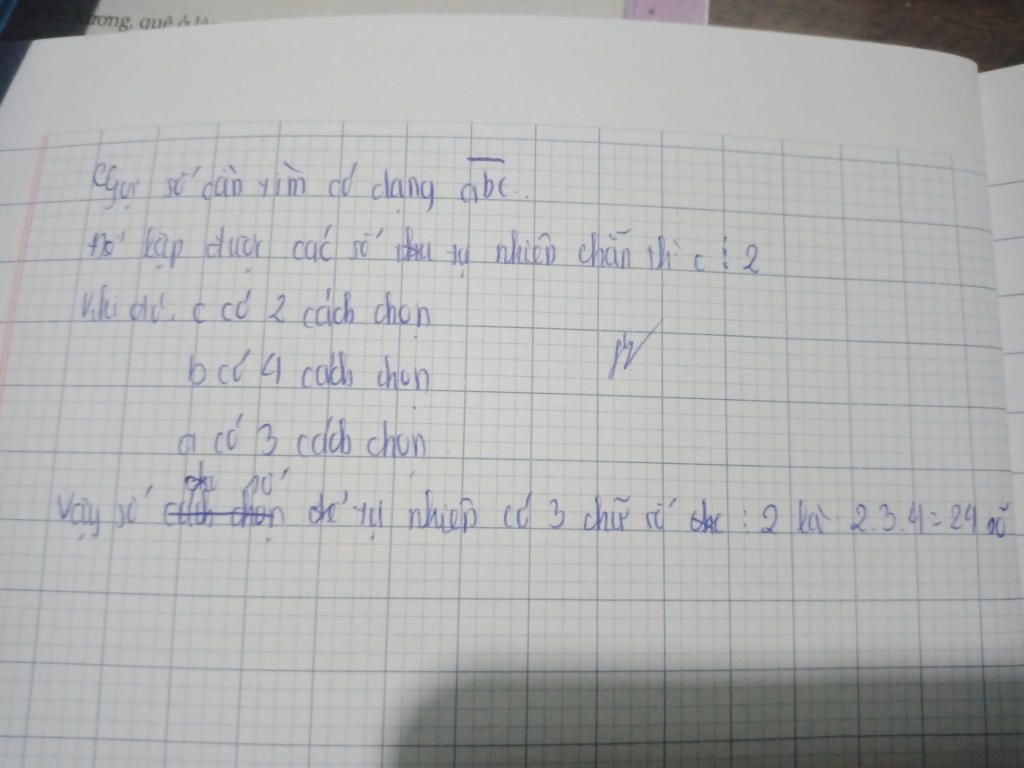 Xương, quê ở là
Gọi số cần tìm có dạng abc.
Để lập được các số tự nhiên chẵn thì c ⋮ 2
Khi đó. c có 2 cách chọn
b có 4 cách chọn
a có 3 cách chọn
số
Vậy số để tự nhiên có 3 chữ số ⋮ 2 là: 2.3.4=24 số